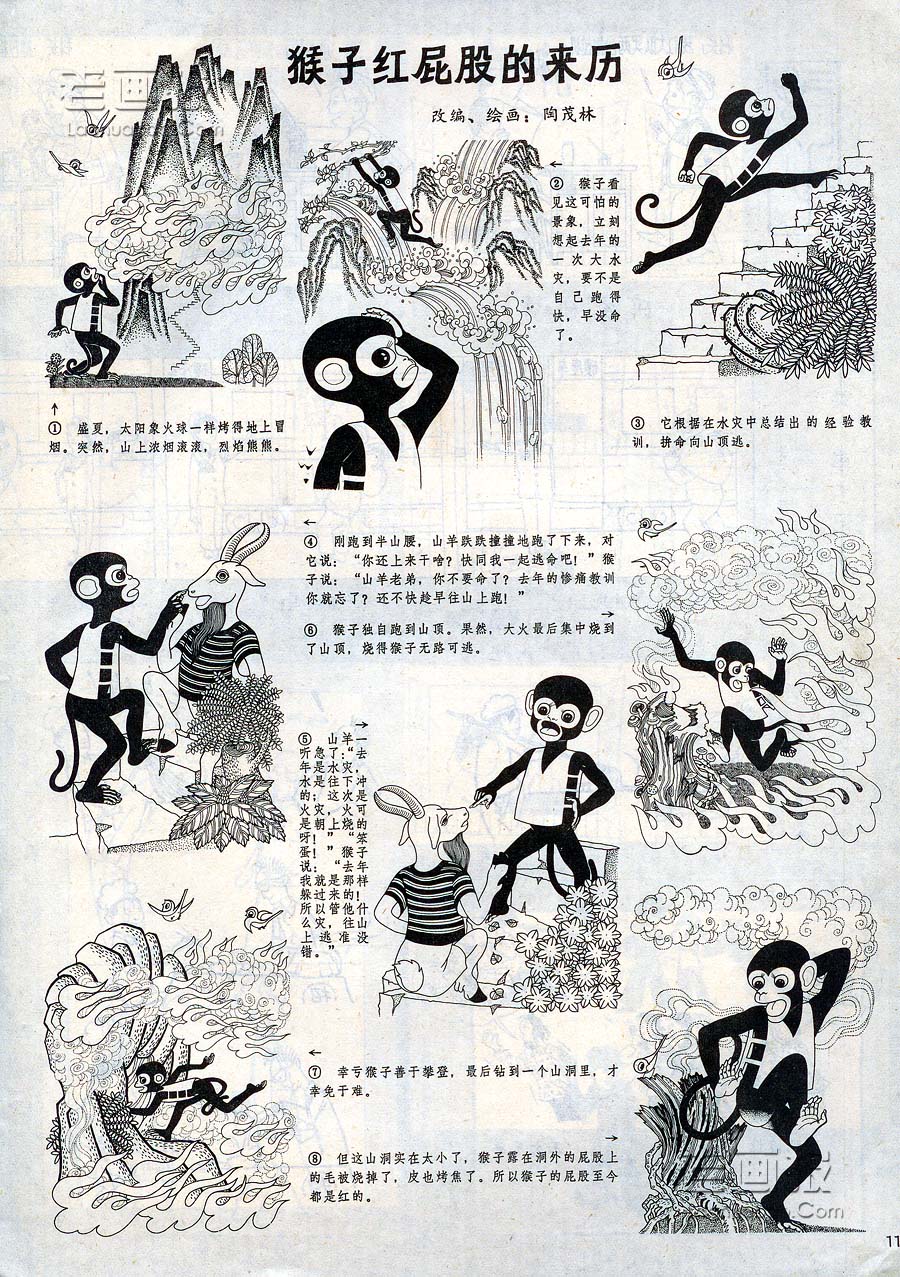 猴子红屁股的来历
改编、绘画：陶茂林
① 盛夏，太阳象火球一样烤得地上冒
烟。突然，山上浓烟滚滚，烈焰熊熊。
② 猴子看
见这可怕的
景象，立刻
想起去年的
一次大水
灾，要不是
自己跑得
快，早没命
了。
③ 它根据在水灾中总结出的经验教
训，拼命向山顶逃。
④ 刚跑到半山腰，山羊跌跌撞撞地跑了下来，对
它说：“你还上来干啥？快同我一起逃命吧！”猴
子说：“山羊老弟，你不要命了？去年的惨痛教训
你就忘了？还不快趁早往山上跑！”
⑤ 山羊一
听急了：“去
年是水灾，
水是往下冲
的；这次是
火灾，火可
是朝上烧的
呀！”“笨
蛋！”猴子
说：“去年
我就是那样
躲过来的！
所以管他什
么灾，往山
上逃准没
错。”
⑥ 猴子独自跑到山顶。果然，大火最后集中烧到
了山顶，烧得猴子无路可逃。
⑦ 幸亏猴子善于攀登，最后钻到一个山洞里，才
幸免于难。
⑧ 但这山洞实在太小了，猴子露在洞外的屁股上
的毛被烧掉了，皮也烤焦了。所以猴子的屁股至今
都是红的。
11